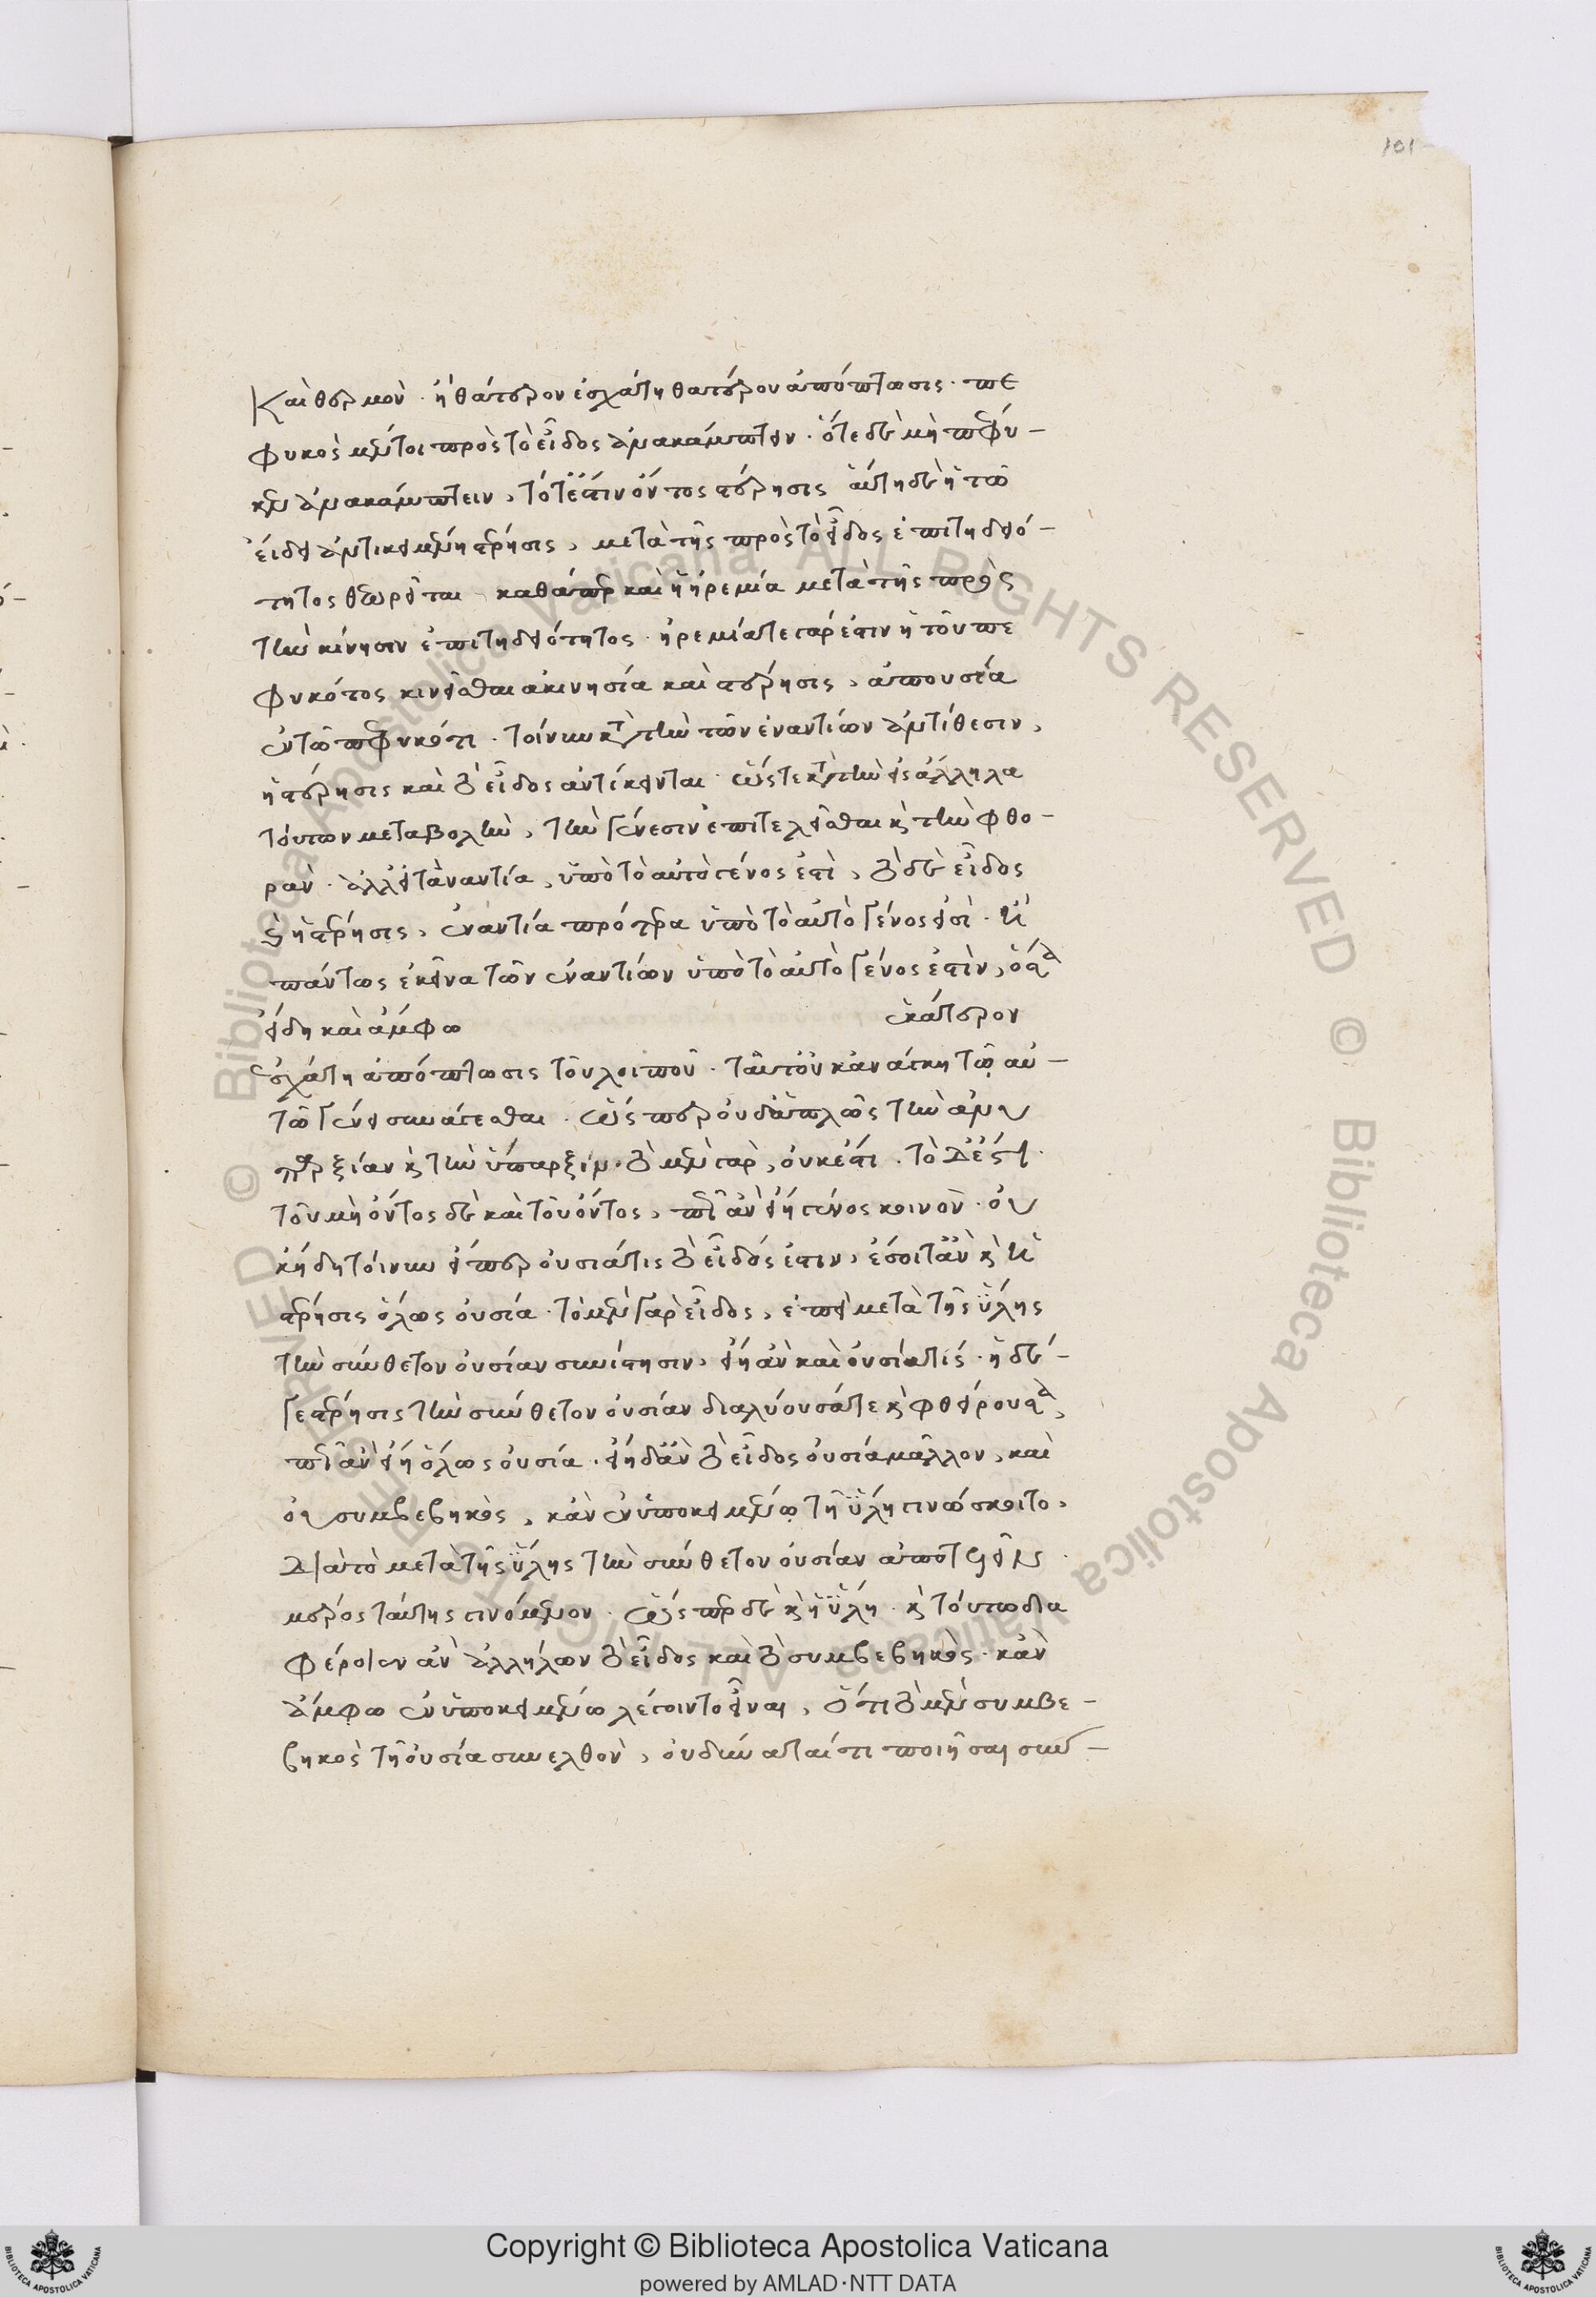 101
Καὶ θερμὸν · ἢ θάτερον ἐσχάτη θατέρου ἀπόπτωσις · πε
φυκὸς μέντοι πρὸς τὸ εἶδος ἀνακάμπτειν · ὅτε δὲ μὴ πεφύ-
κεν ἀνακάμπτειν, τότέ ἐστιν ὄντος στέρησις αὕτη δὲ ἡ τῶ
εἴδει ἀντικειμένη στέρησις, μετὰ τῆς πρὸς τὸ εἶδος ἐπιτηδειό-
τητος θεωρεῖται καθάπερ καὶ ἡ ἠρεμία μετὰ τῆς πρὸς
τὴν κίνησιν ἐπιτηδειότητος · ἠρεμία τε γάρ ἐστιν ἡ τοῦ πε
φυκότος κινεῖσθαι ἀκινησία καὶ στέρησις, ἀπουσία
ἐν τῶ πεφυκότι · τοίνυν κατὰ τὴν τῶν ἐναντίων ἀντίθεσιν,
ἡ στέρησις καὶ τὸ εἶδος ἀντίκεινται · ὥστε κατὰ τὴν εἰς ἄλληλα
τούτων μεταβολὴν, τὴν γένεσιν ἐπιτελεῖσθαι καὶ τὴν φθο-
ρὰν · ἀλλ' εἰ τἀναντία, ὑπὸ τὸ αὐτὸ γένος ἐστὶ, τὸ δὲ εἶδος
καὶ ἡ στέρησις, ἐναντία πρότερα ὑπὸ τὸ αὐτὸ γένος εἰσὶ · ἢ
πάντως ἐκεῖνα τῶν ἐναντίων ὑπὸ τὸ αὐτὸ γένος ἐστὶν, ὅσα
εἴδη καὶ ἄμφω ἑκάτερον
ἐσχάτη ἀπόπτωσις τοῦ λοιποῦ · ταῦτ' οὐκ ἀνάγκη τῷ αὐ-
τῶ γένει συνάγεσθαι · ὥσπερ οὐδ' ἁπλῶς τὴν ἀνυ
παρξίαν καὶ τὴν ὕπαρξιν · τὸ μὲν γὰρ, οὐκ ἔστι · τὸ δ' ἔστι ·
τοῦ μὴ ὄντος δὲ καὶ τοῦ ὄντος, τί ἂν εἴη γένος κοινὸν · οὐ
κ ἤδη τοίνυν εἴπερ οὐσία τις τὸ εἶδός ἐστιν, ἔσοιτ' ἂν καὶ ἡ
στέρησις ὅλως οὐσία · τὸ μὲν γὰρ εἶδος, ἐπεὶ μετὰ τῆς ὕλης
τὴν σύνθετον οὐσίαν συνίστησιν, εἴη ἂν καὶ οὐσία τίς · ἡ δέ-
γε στέρησις τὴν σύνθετον οὐσίαν διαλύουσά τε καὶ φθείρουσα,
πῶς ἂν εἴη ὅλως οὐσία · εἴη δ' ἂν τὸ εἶδος οὐσία μᾶλλον, καὶ
οὐ συμβεβηκὸς, κἀν ἐν ὑποκειμένῳ τῆ ὕλη γινώσκοιτο,
διὰ τὸ μετὰ τῆς ὕλης τὴν σύνθετον οὐσίαν ἀποτελεῖν
μέρος ταύτης γινόμενον · ὥσπερ δὲ καὶ ἡ ὕλη · καὶ τούτω δια
φέροιεν ἂν ἀλλήλων τὸ εἶδος καὶ τὸ συμβεβηκὸς · κἀν
ἄμφω ἐν ὑποκειμένω λέγοιντο εἶναι, ὅτι τὸ μὲν συμβε-
βηκὸς τῆ οὐσία συνελθὸν, οὐ δύναταί τι ποιῆσαι σύν-
Copyright © Biblioteca Apostolica Vaticana
powered by AMLAD·NTT DATA